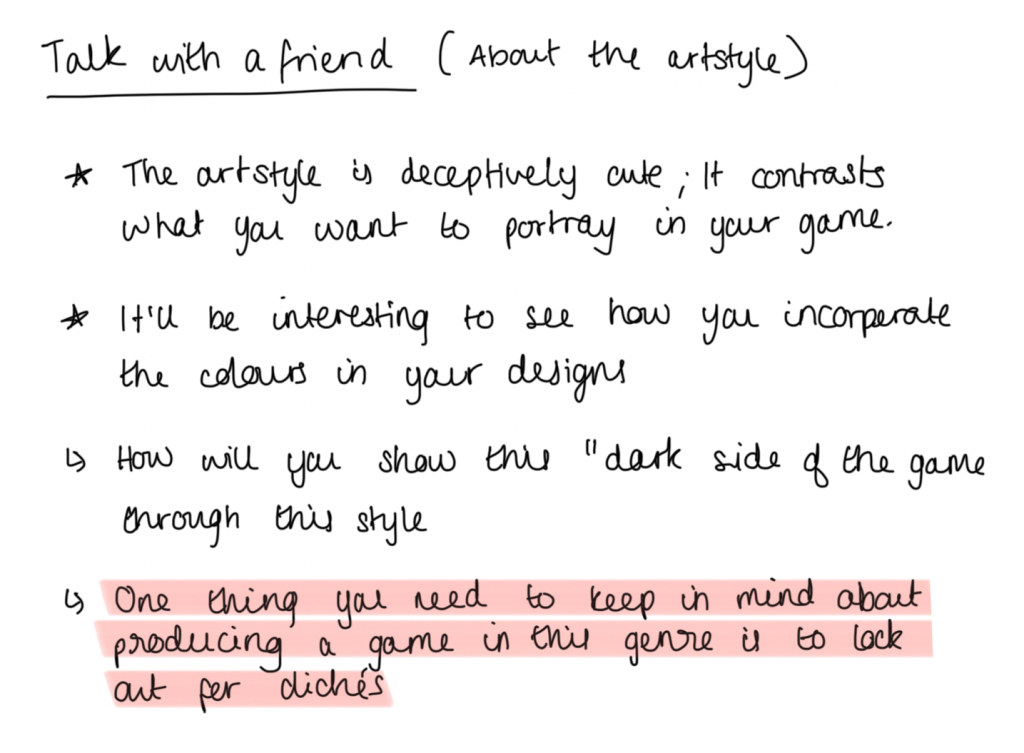 Talk with a friend (About the artstyle)
* The artstyle is deceptively cute; It contrasts
what you want to portray in your game.
* It'll be interesting to see how you incorperate
the colours in your designs
↳ How will you show this "dark side of the game
through this style
↳ One thing you need to keep in mind about
producing a game in this genre is to look
out for clichés